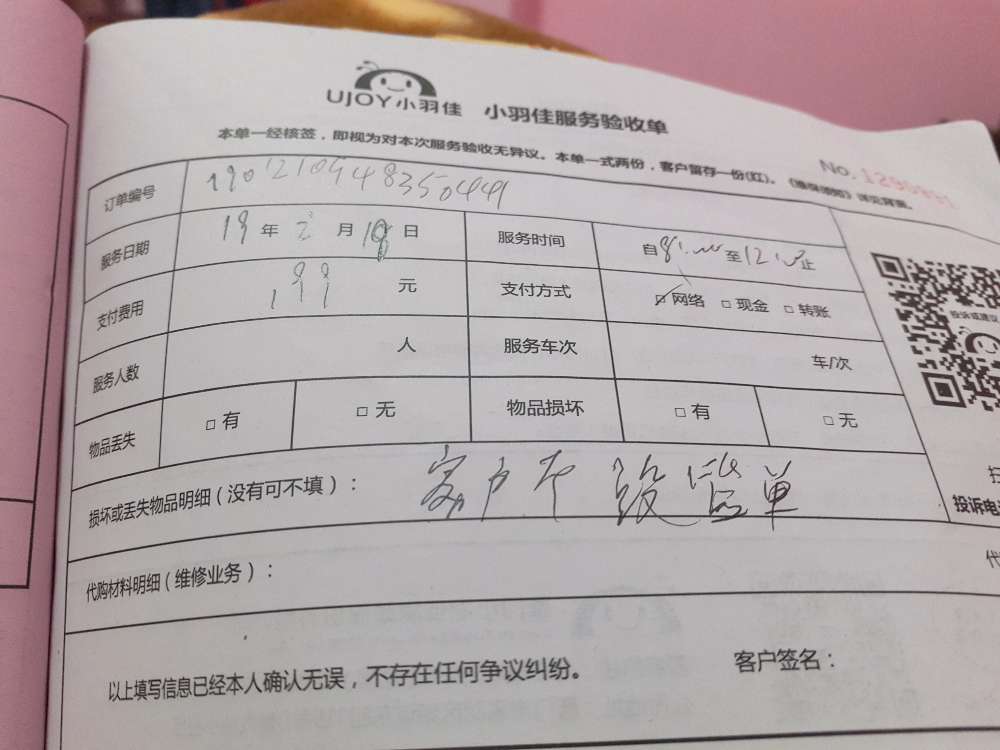 UJOY小羽佳 小羽佳服务验收单
本单一经核签，即视为对本次服务验收无异议。本单一式两份，客户留存一份(红)。
No.
订单编号 19012109448350441
服务日期 19年 2 月 18 日 服务时间 自8:00至12:00止
支付费用 199 元 支付方式 ☑网络 □现金 □转账
服务人数 人 服务车次 车/次
物品丢失 □有 □无 物品损坏 □有 □无
投诉或建议
损坏或丢失物品明细（没有可不填）： 客户 单
投诉电
代购材料明细（维修业务）：
以上填写信息已经本人确认无误，不存在任何争议纠纷。 客户签名：